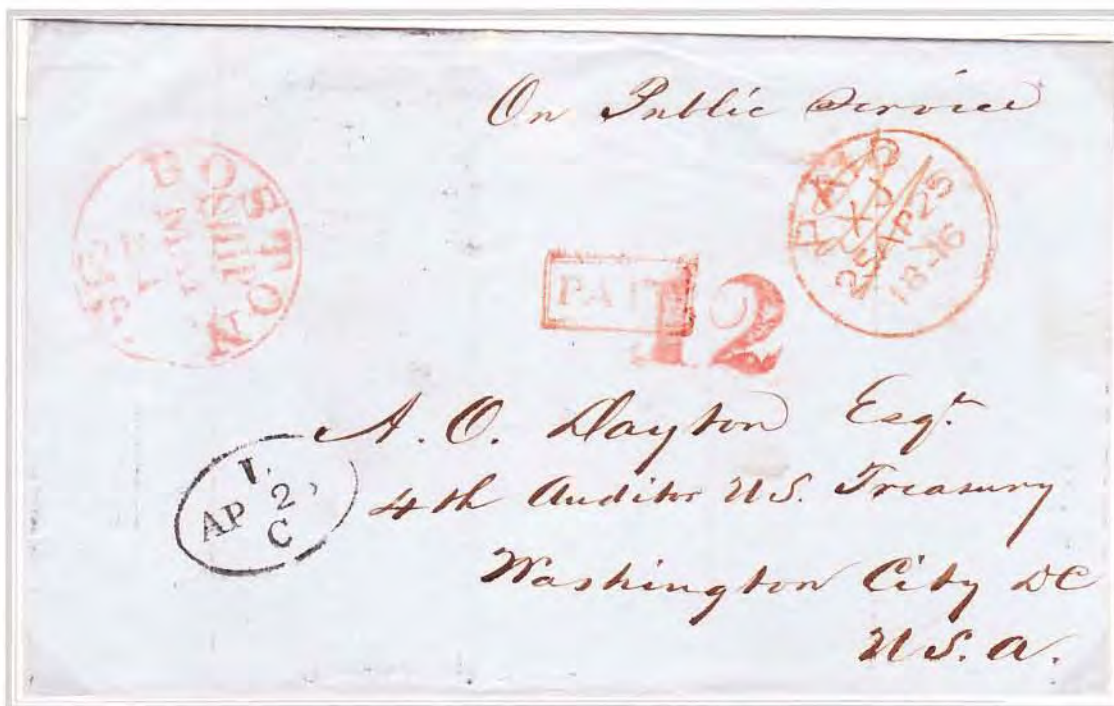 On Public Service
BOSTON
SHIP
MAY
PAID
25 AP 25
1846
PAID
12
A. O. Dayton Esqr.
4th Auditor U.S. Treasury
L
AP 2
C
Washington City DC
U.S.A.